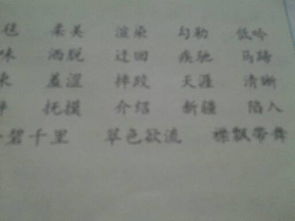 毯 柔美 渲染 勾勒 低吟
味 洒脱 迂回 疾驰 马蹄
羞涩 摔跤 天涯 清晰
抚摸 介绍 新疆 陷入
碧千里 翠色欲流 襟飘带舞